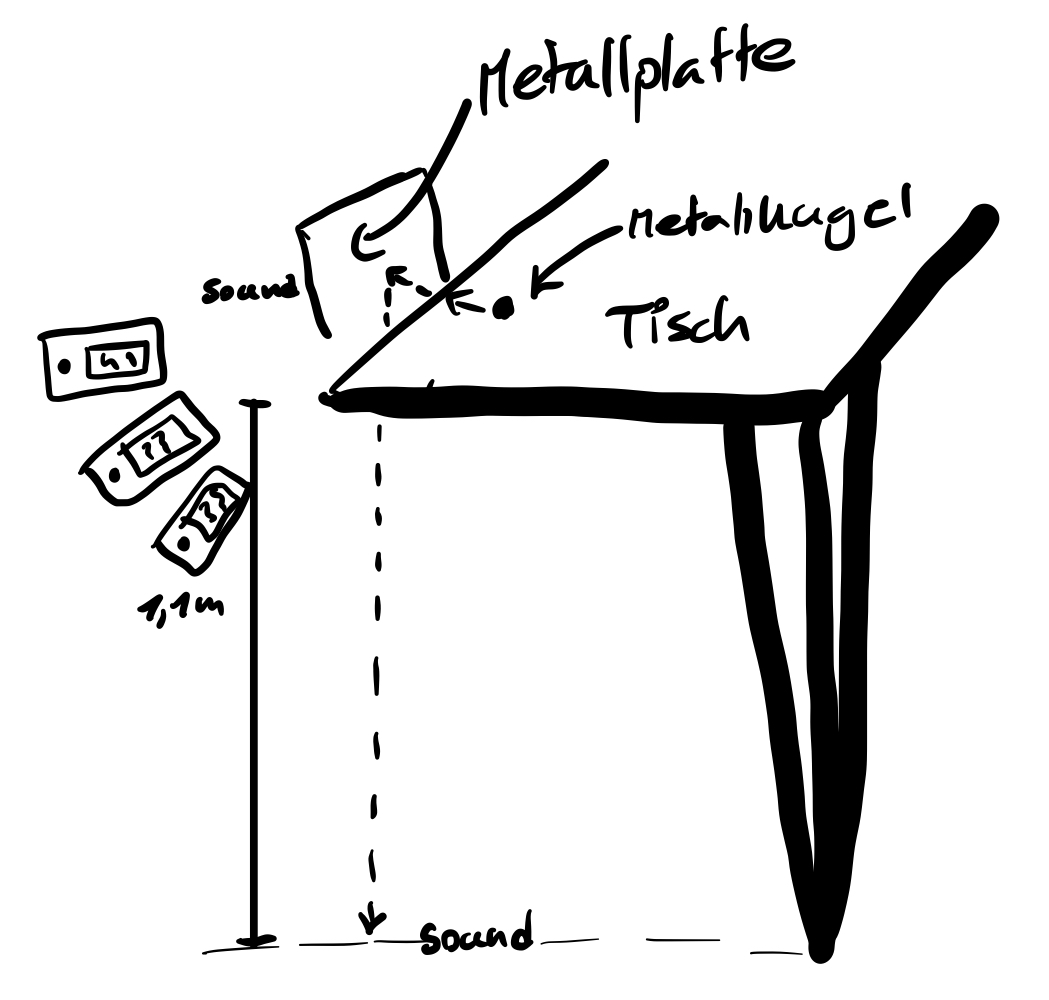 Metallplatte
Metallkugel
sound
Tisch
??
??
1,1m
sound